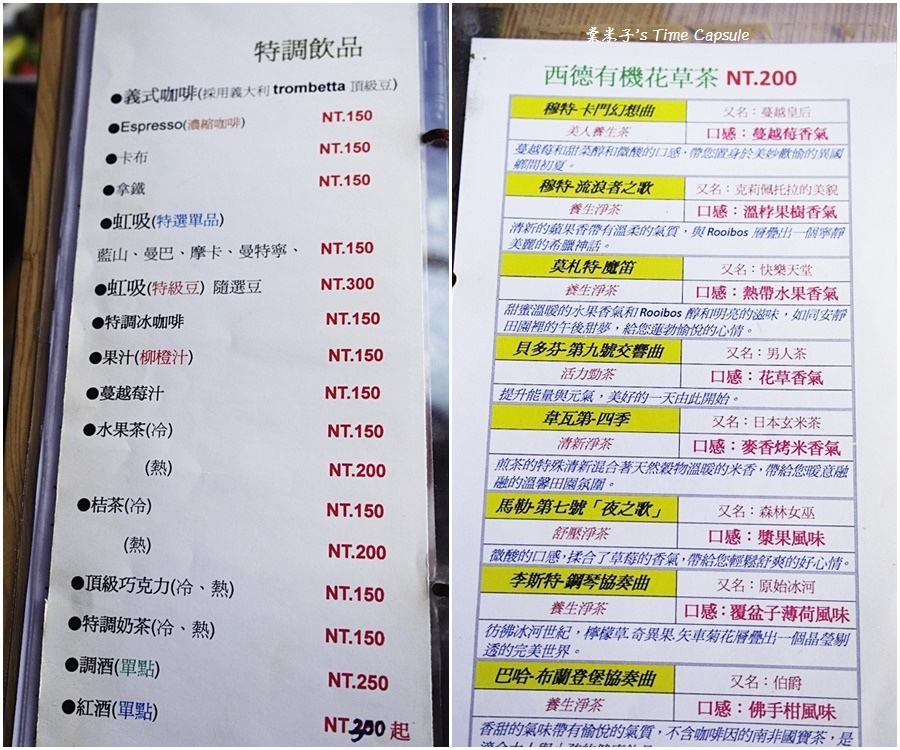 特調飲品
●義式咖啡(採用義大利 trombetta 頂級豆)
●Espresso(濃縮咖啡) NT.150
●卡布 NT.150
●拿鐵 NT.150
●虹吸(特選單品)
藍山、曼巴、摩卡、曼特寧、 NT.150
●虹吸(特級豆) 隨選豆 NT.300
●特調冰咖啡 NT.150
●果汁(柳橙汁) NT.150
●蔓越莓汁 NT.150
●水果茶(冷) NT.150
(熱) NT.200
●桔茶(冷) NT.150
(熱) NT.200
●頂級巧克力(冷、熱) NT.150
●特調奶茶(冷、熱) NT.150
●調酒(單點) NT.250
●紅酒(單點) NT.300 起
葉米子's Time Capsule
西德有機花草茶 NT.200
穆特-卡門幻想曲 又名：蔓越皇后
美人養生茶 口感：蔓越莓香氣
蔓越莓和甜菜醇和微酸的口感，帶您置身於美妙歡愉的異國
鄉間初夏。
穆特-流浪者之歌 又名：克莉佩托拉的美貌
養生淨茶 口感：溫桲果樹香氣
清新的蘋果香帶有溫柔的氣質，與 Rooibos 層疊出一個寧靜
美麗的希臘神話。
莫札特-魔笛 又名：快樂天堂
養生淨茶 口感：熱帶水果香氣
甜蜜溫暖的水果香氣和 Rooibos 醇和明亮的滋味，如同安靜
田園裡的午後甜夢，給您蓬勃愉悅的心情。
貝多芬-第九號交響曲 又名：男人茶
活力勁茶 口感：花草香氣
提升能量與元氣，美好的一天由此開始。
韋瓦第-四季 又名：日本玄米茶
清新淨茶 口感：麥香烤米香氣
煎茶的特殊清新混合著天然穀物溫暖的米香，帶給您暖意融
融的溫馨田園氛圍。
馬勒-第七號「夜之歌」 又名：森林女巫
舒壓淨茶 口感：漿果風味
微酸的口感，揉合了草莓的香氣，帶給您輕鬆舒爽的好心情。
李斯特-鋼琴協奏曲 又名：原始冰河
養生淨茶 口感：覆盆子薄荷風味
彷彿冰河世紀，檸檬草.奇異果.矢車菊花層疊出一個晶瑩剔
透的完美世界。
巴哈-布蘭登堡協奏曲 又名：伯爵
養生淨茶 口感：佛手柑風味
香甜的氣味帶有愉悅的氣質，不含咖啡因的南非國寶茶，是